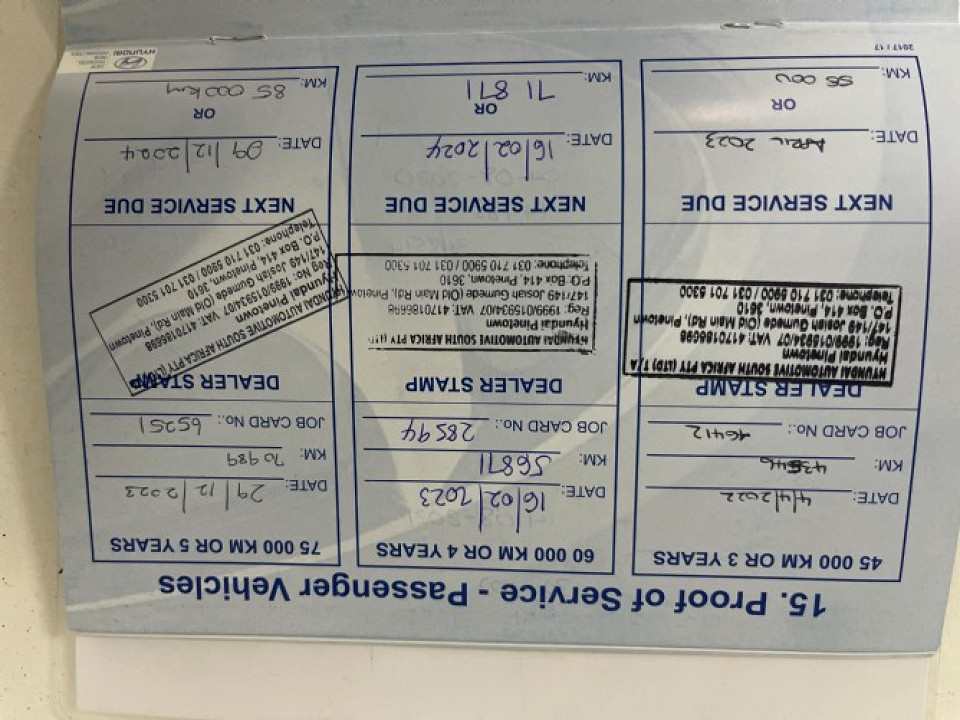 15. Proof of Service - Passenger Vehicles
45 000 KM OR 3 YEARS
DATE: 4/4/2022
KM:
JOB CARD No.: 46412
DEALER STAMP
HYUNDAI AUTOMOTIVE SOUTH AFRICA PTY (LTD) T/A
Hyundai Pinetown
Reg: 1999/015934/07 VAT: 4170186698
147/149 Josiah Gumede (Old Main Rd), Pinetown
P.O. Box 414, Pinetown, 3610
Telephone: 031 710 5900 / 031 701 5300
NEXT SERVICE DUE
DATE: APRIL 2023
OR
KM: 55 000
2017 / 17
60 000 KM OR 4 YEARS
DATE: 16/02/2023
KM: 56871
JOB CARD No.: 28594
DEALER STAMP
HYUNDAI AUTOMOTIVE SOUTH AFRICA PTY (LTD)
Hyundai Pinetown
Reg: 1999/015934/07 VAT: 4170186698
147/149 Josiah Gumede (Old Main Rd), Pinetown
P.O. Box 414, Pinetown, 3610
Telephone: 031 710 5900 / 031 701 5300
NEXT SERVICE DUE
DATE: 16/02/2024
OR
KM: 71 871
75 000 KM OR 5 YEARS
DATE: 29/12/2023
KM: 70989
JOB CARD No.: 65251
DEALER STAMP
HYUNDAI AUTOMOTIVE SOUTH AFRICA PTY (LTD)
Hyundai Pinetown
Reg No: 1999/015934/07 VAT: 4170186698
147/149 Josiah Gumede (Old Main Rd), Pinetown
P.O. Box 414, Pinetown, 3610
Telephone: 031 710 5900 / 031 701 5300
NEXT SERVICE DUE
DATE: 29/12/2024
OR
KM: 85 000 km
HYUNDAI